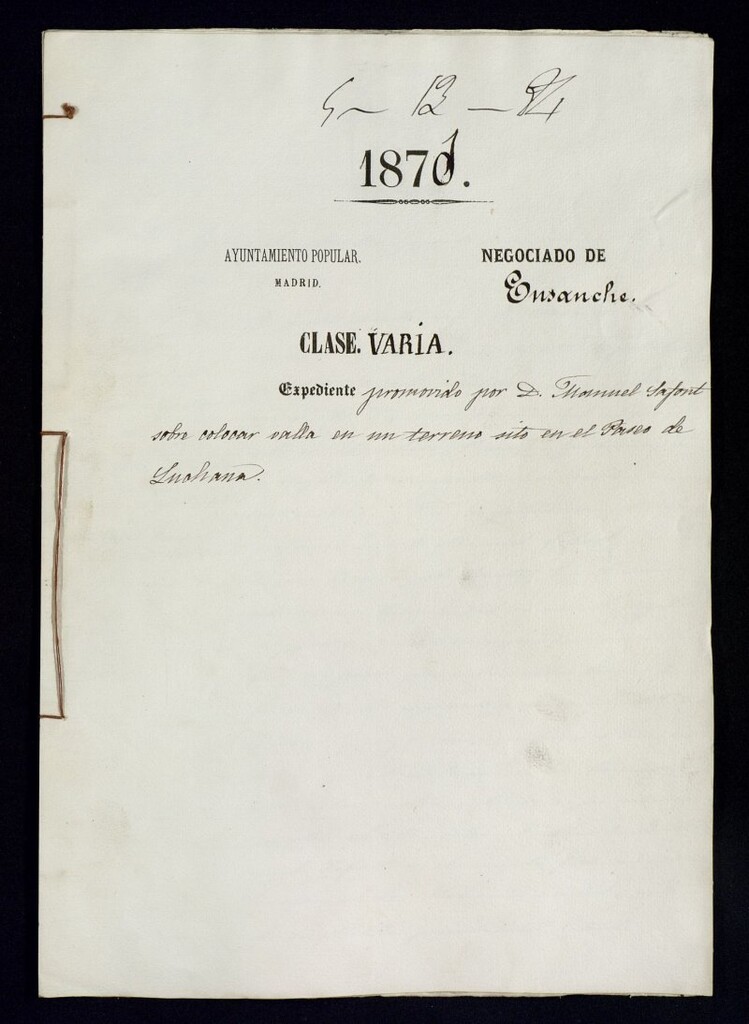 5 – 12 – 84
1871.
AYUNTAMIENTO POPULAR.
MADRID.
NEGOCIADO DE
Ensanche.
CLASE. VARIA.
Expediente promovido por D. Manuel Safont
sobre colocar valla en un terreno sito en el Paseo de
Luchana.